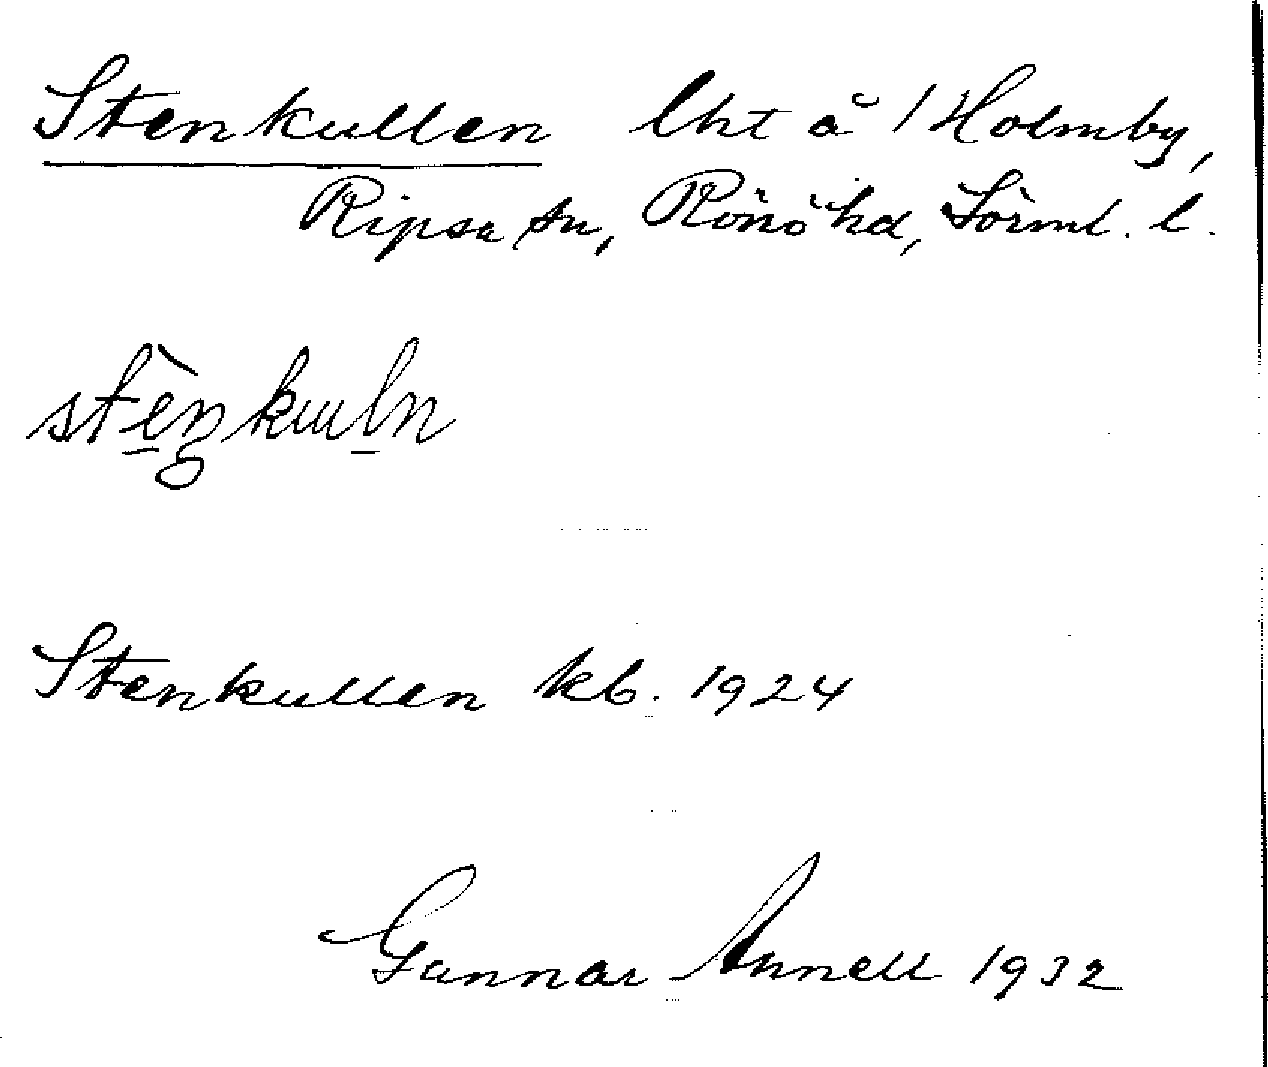 Stenkullen lht å 1 Holmby,
Ripsa sn, Rönö hd, Sörml. l.
stèŋkuln
Stenkullen kb. 1924
Gunnar Annell 1932